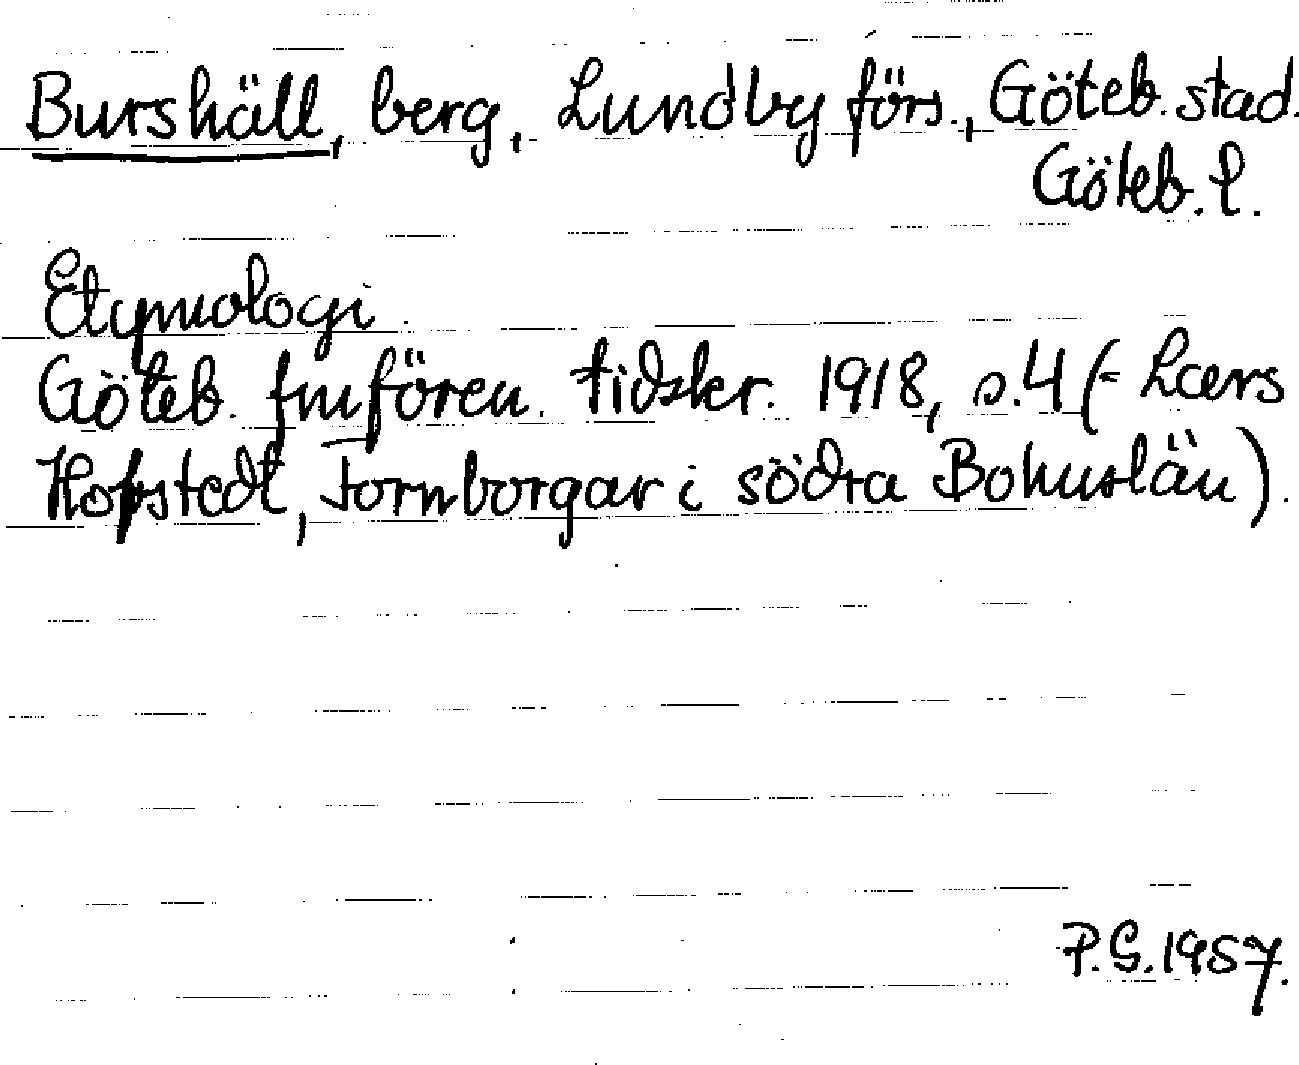 Burshäll, berg, Lundby förs., Göteb. stad.
Göteb. l.
Etymologi.
Göteb. fmfören. tidskr. 1918, s. 4 (= Lars
Hofstedt, Fornborgar i södra Bohuslän).
P.G. 1957.